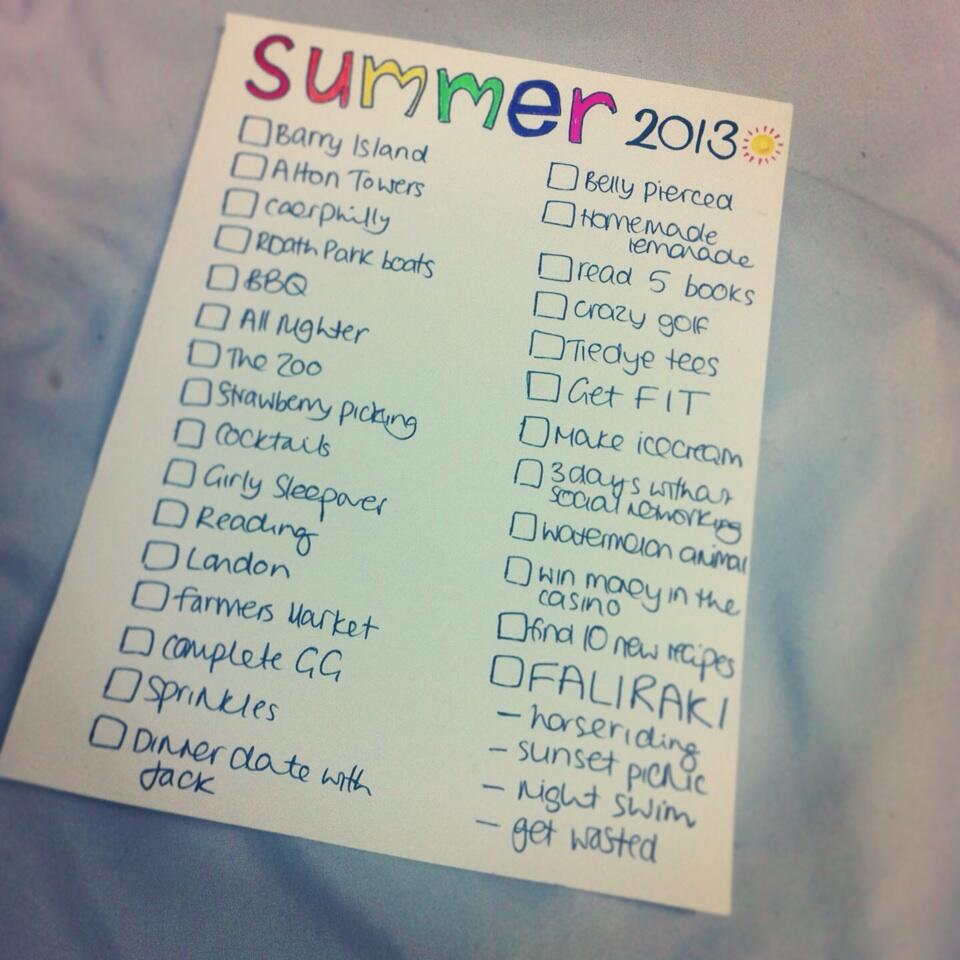 Summer 2013
Barry Island
Alton Towers
Caerphilly
ROath Park boats
BBQ
All Nighter
The Zoo
Strawberry picking
Cocktails
Girly Sleepover
Reading
London
farmers Market
complete GG
Sprinkles
Dinner date with
Jack
Belly pierced
Homemade
lemonade
read 5 books
crazy golf
Tiedye tees
Get FIT
Make icecream
3 days without
social networking
watermelon animal
win money in the
casino
find 10 new recipes
FALIRAKI
- horseriding
- sunset picnic
- Night swim
- get wasted